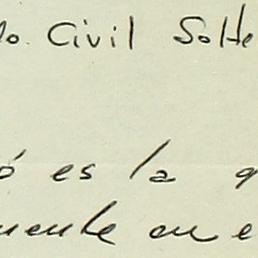 do. Civil Solte
ó es la q
mente en e